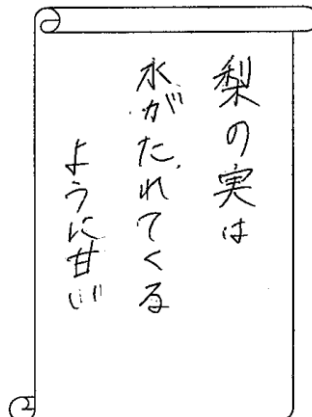 梨の実は
水がたれてくる
ように甘い